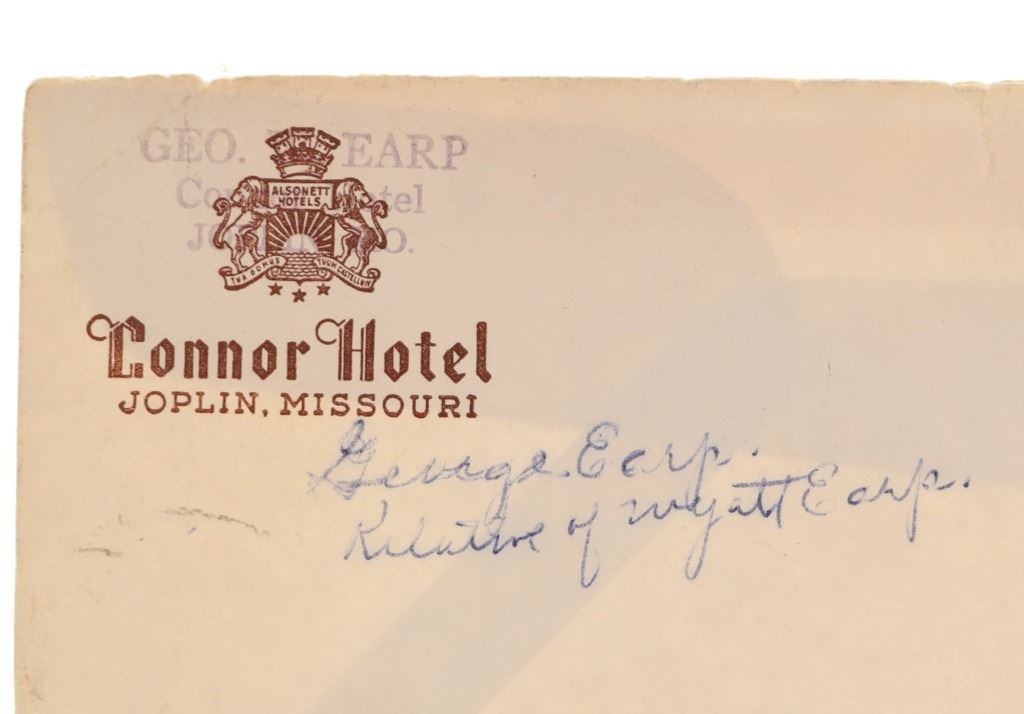 GEO. EARP
ALSONETT
HOTELS
TUA DOMUS TUUM CASTELLUM
Connor Hotel
JOPLIN, MISSOURI
George Earp.
Relative of Wyatt Earp.